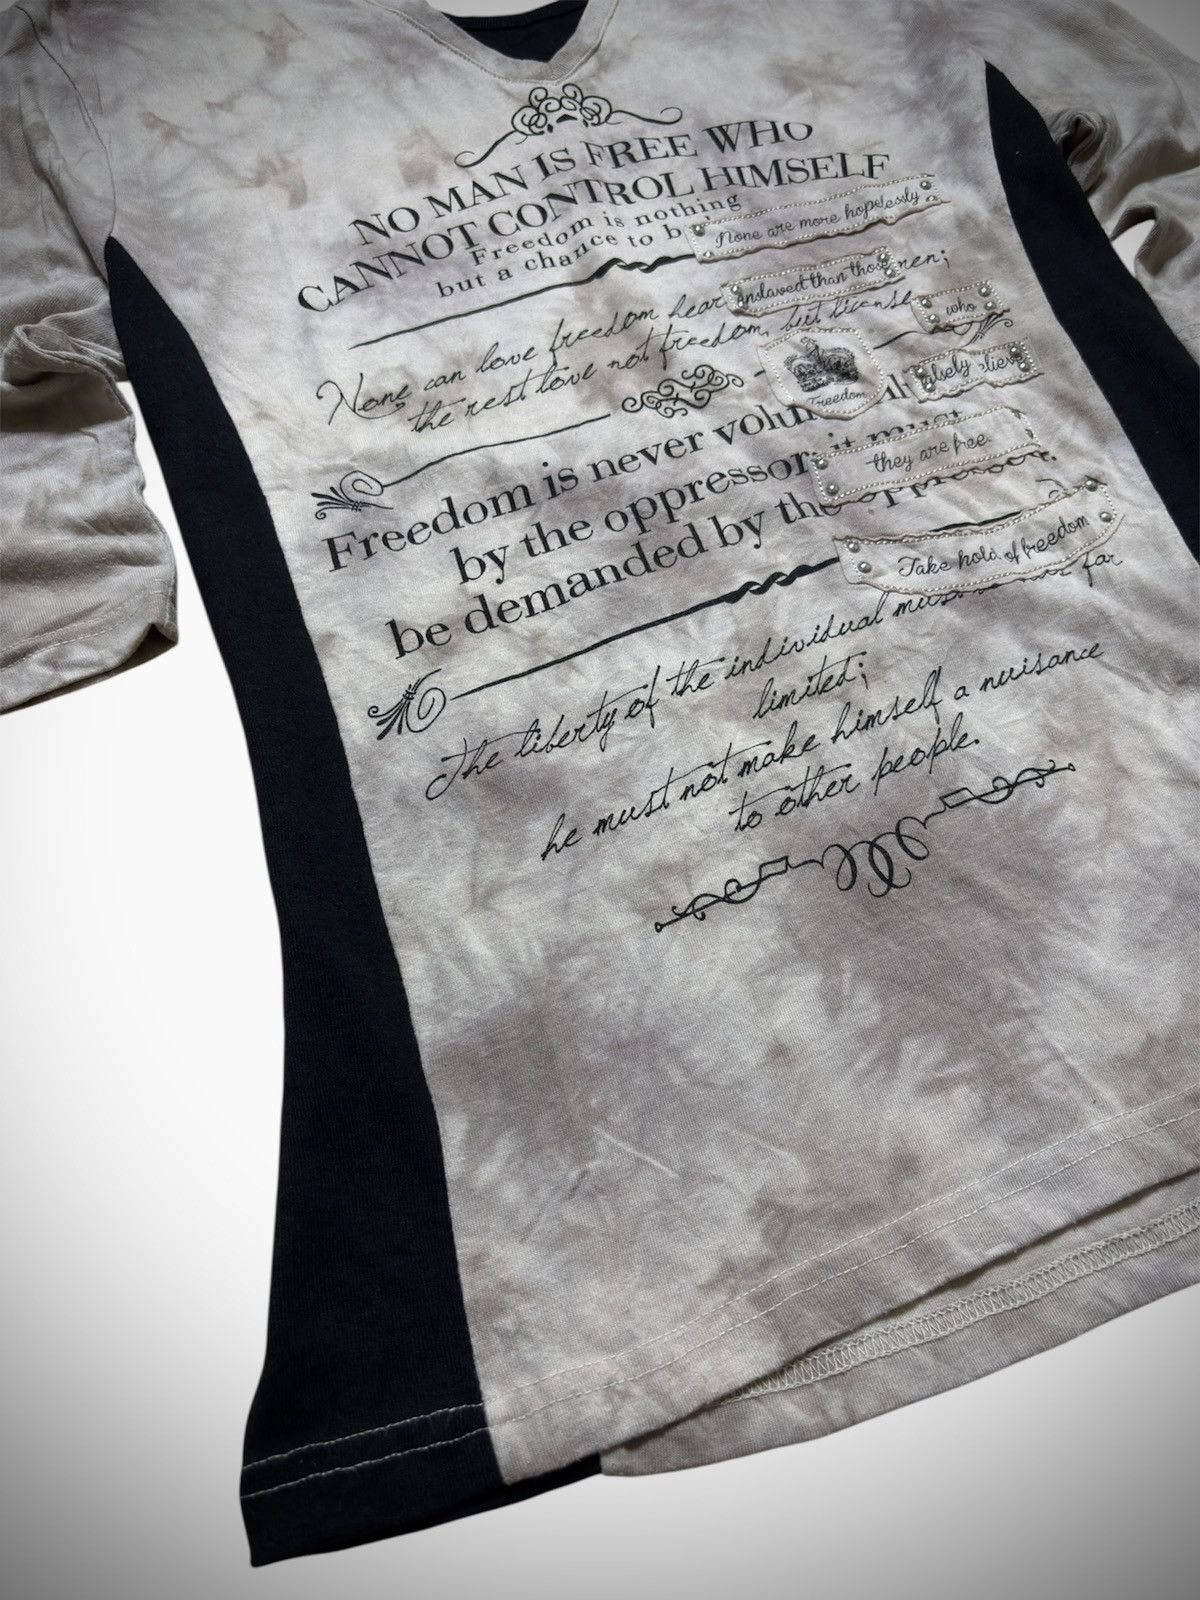 NO MAN IS FREE WHO
CANNOT CONTROL HIMSELF
Freedom is nothing
but a chance to b
None are more hopelessly
enslaved than those
who
they are free.
Take hold of freedom
Freedom
None can love freedom hear
the rest love not freedom, but license
Freedom is never
by the oppressor; it must
be demanded by the oppressed.
The liberty of the individual must far
limited;
he must not make himself a nuisance
to other people.